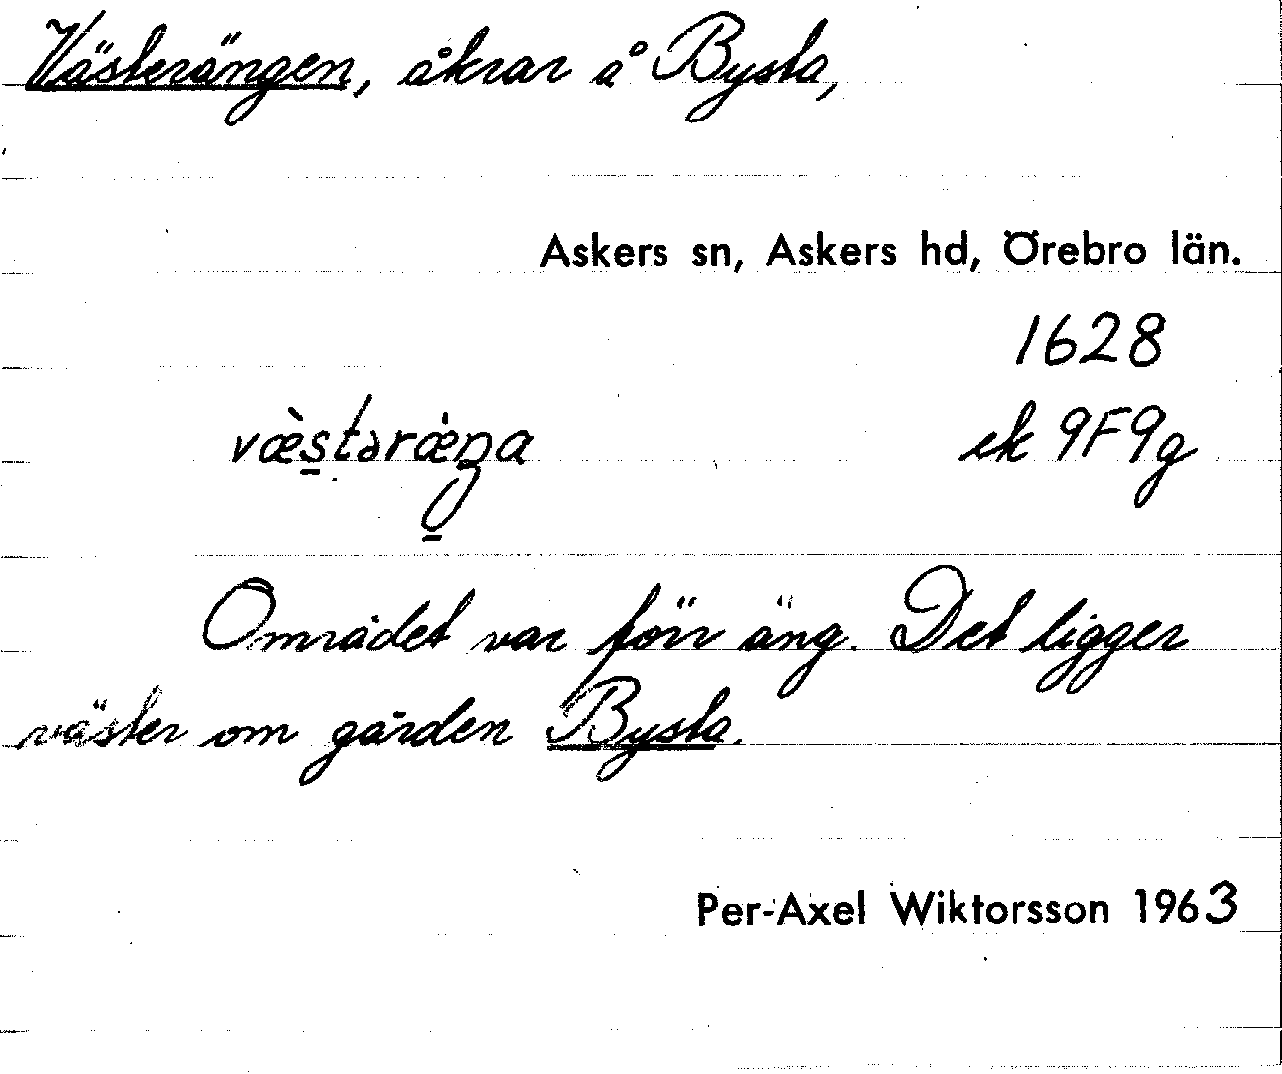 Västerängen, åkrar å Bysta,
Askers sn, Askers hd, Örebro län.
1628
væ̀stərǽŋa ek 9F9g
Området var förr äng. Det ligger
väster om gården Bysta.
Per-Axel Wiktorsson 1963